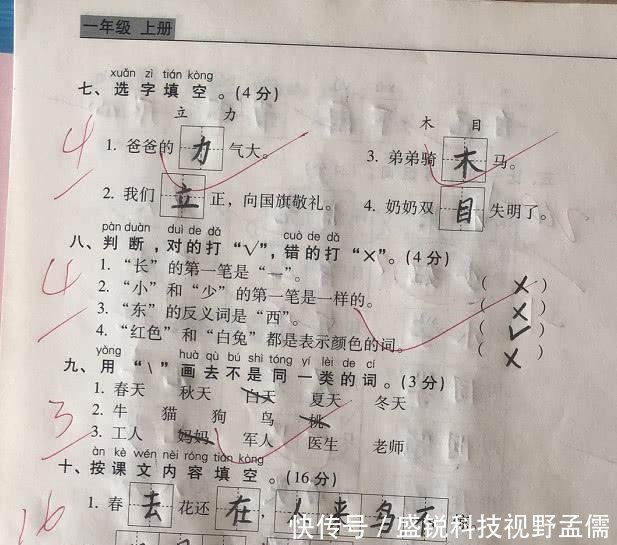 一年级 上册
xuǎn zì tián kòng
七、选字填空。(4分)
立 力
木 目
4
1. 爸爸的 力 气大。
3. 弟弟骑 木 马。
2. 我们 立 正，向国旗敬礼。
4. 奶奶双 目 失明了。
pàn duàn duì de dǎ cuò de dǎ
八、判断，对的打“√”，错的打“×”。(4分)
4
1. “长”的第一笔是“一”。 ( × )
2. “小”和“少”的第一笔是一样的。 ( × )
3. “东”的反义词是“西”。 ( √ )
4. “红色”和“白兔”都是表示颜色的词。 ( × )
yòng huà qù bú shì tóng yí lèi de cí
九、用“\”画去不是同一类的词。(3分)
1. 春天 秋天 白天 夏天 冬天
3
2. 牛 猫 狗 鸟 桃
3. 工人 妈妈 军人 医生 老师
àn kè wén nèi róng tián kòng
十、按课文内容填空。(16分)
16
1. 春 去 花还 在，人 来 鸟 不
快传号／盛锐科技视野孟儒